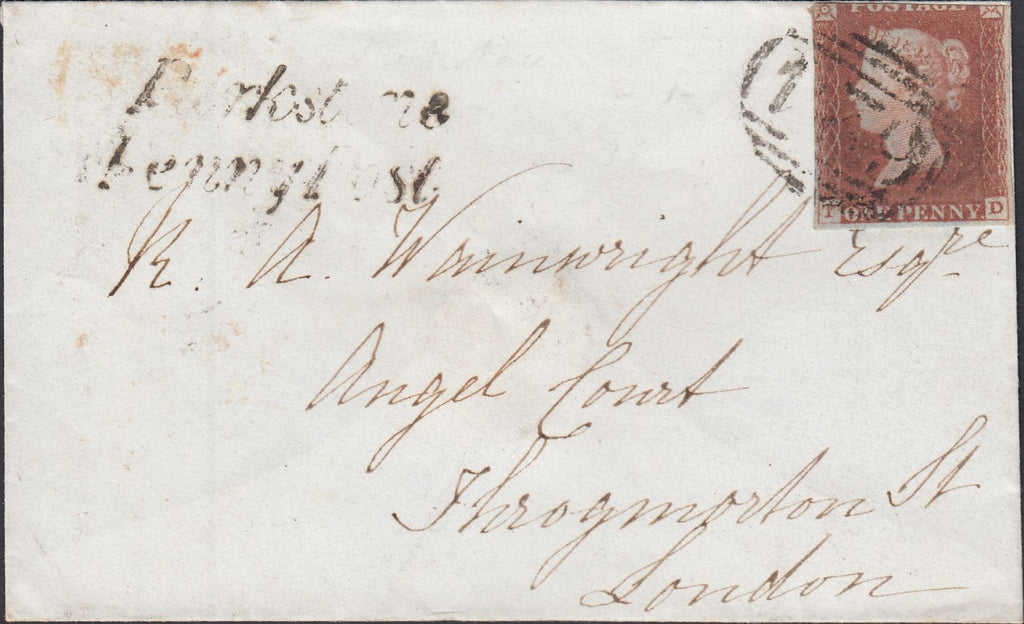 POSTAGE
Parkstone
Penny Post
T ONE PENNY D
R. A. Wainwright Esqre
Angel Court
Throgmorton St
London